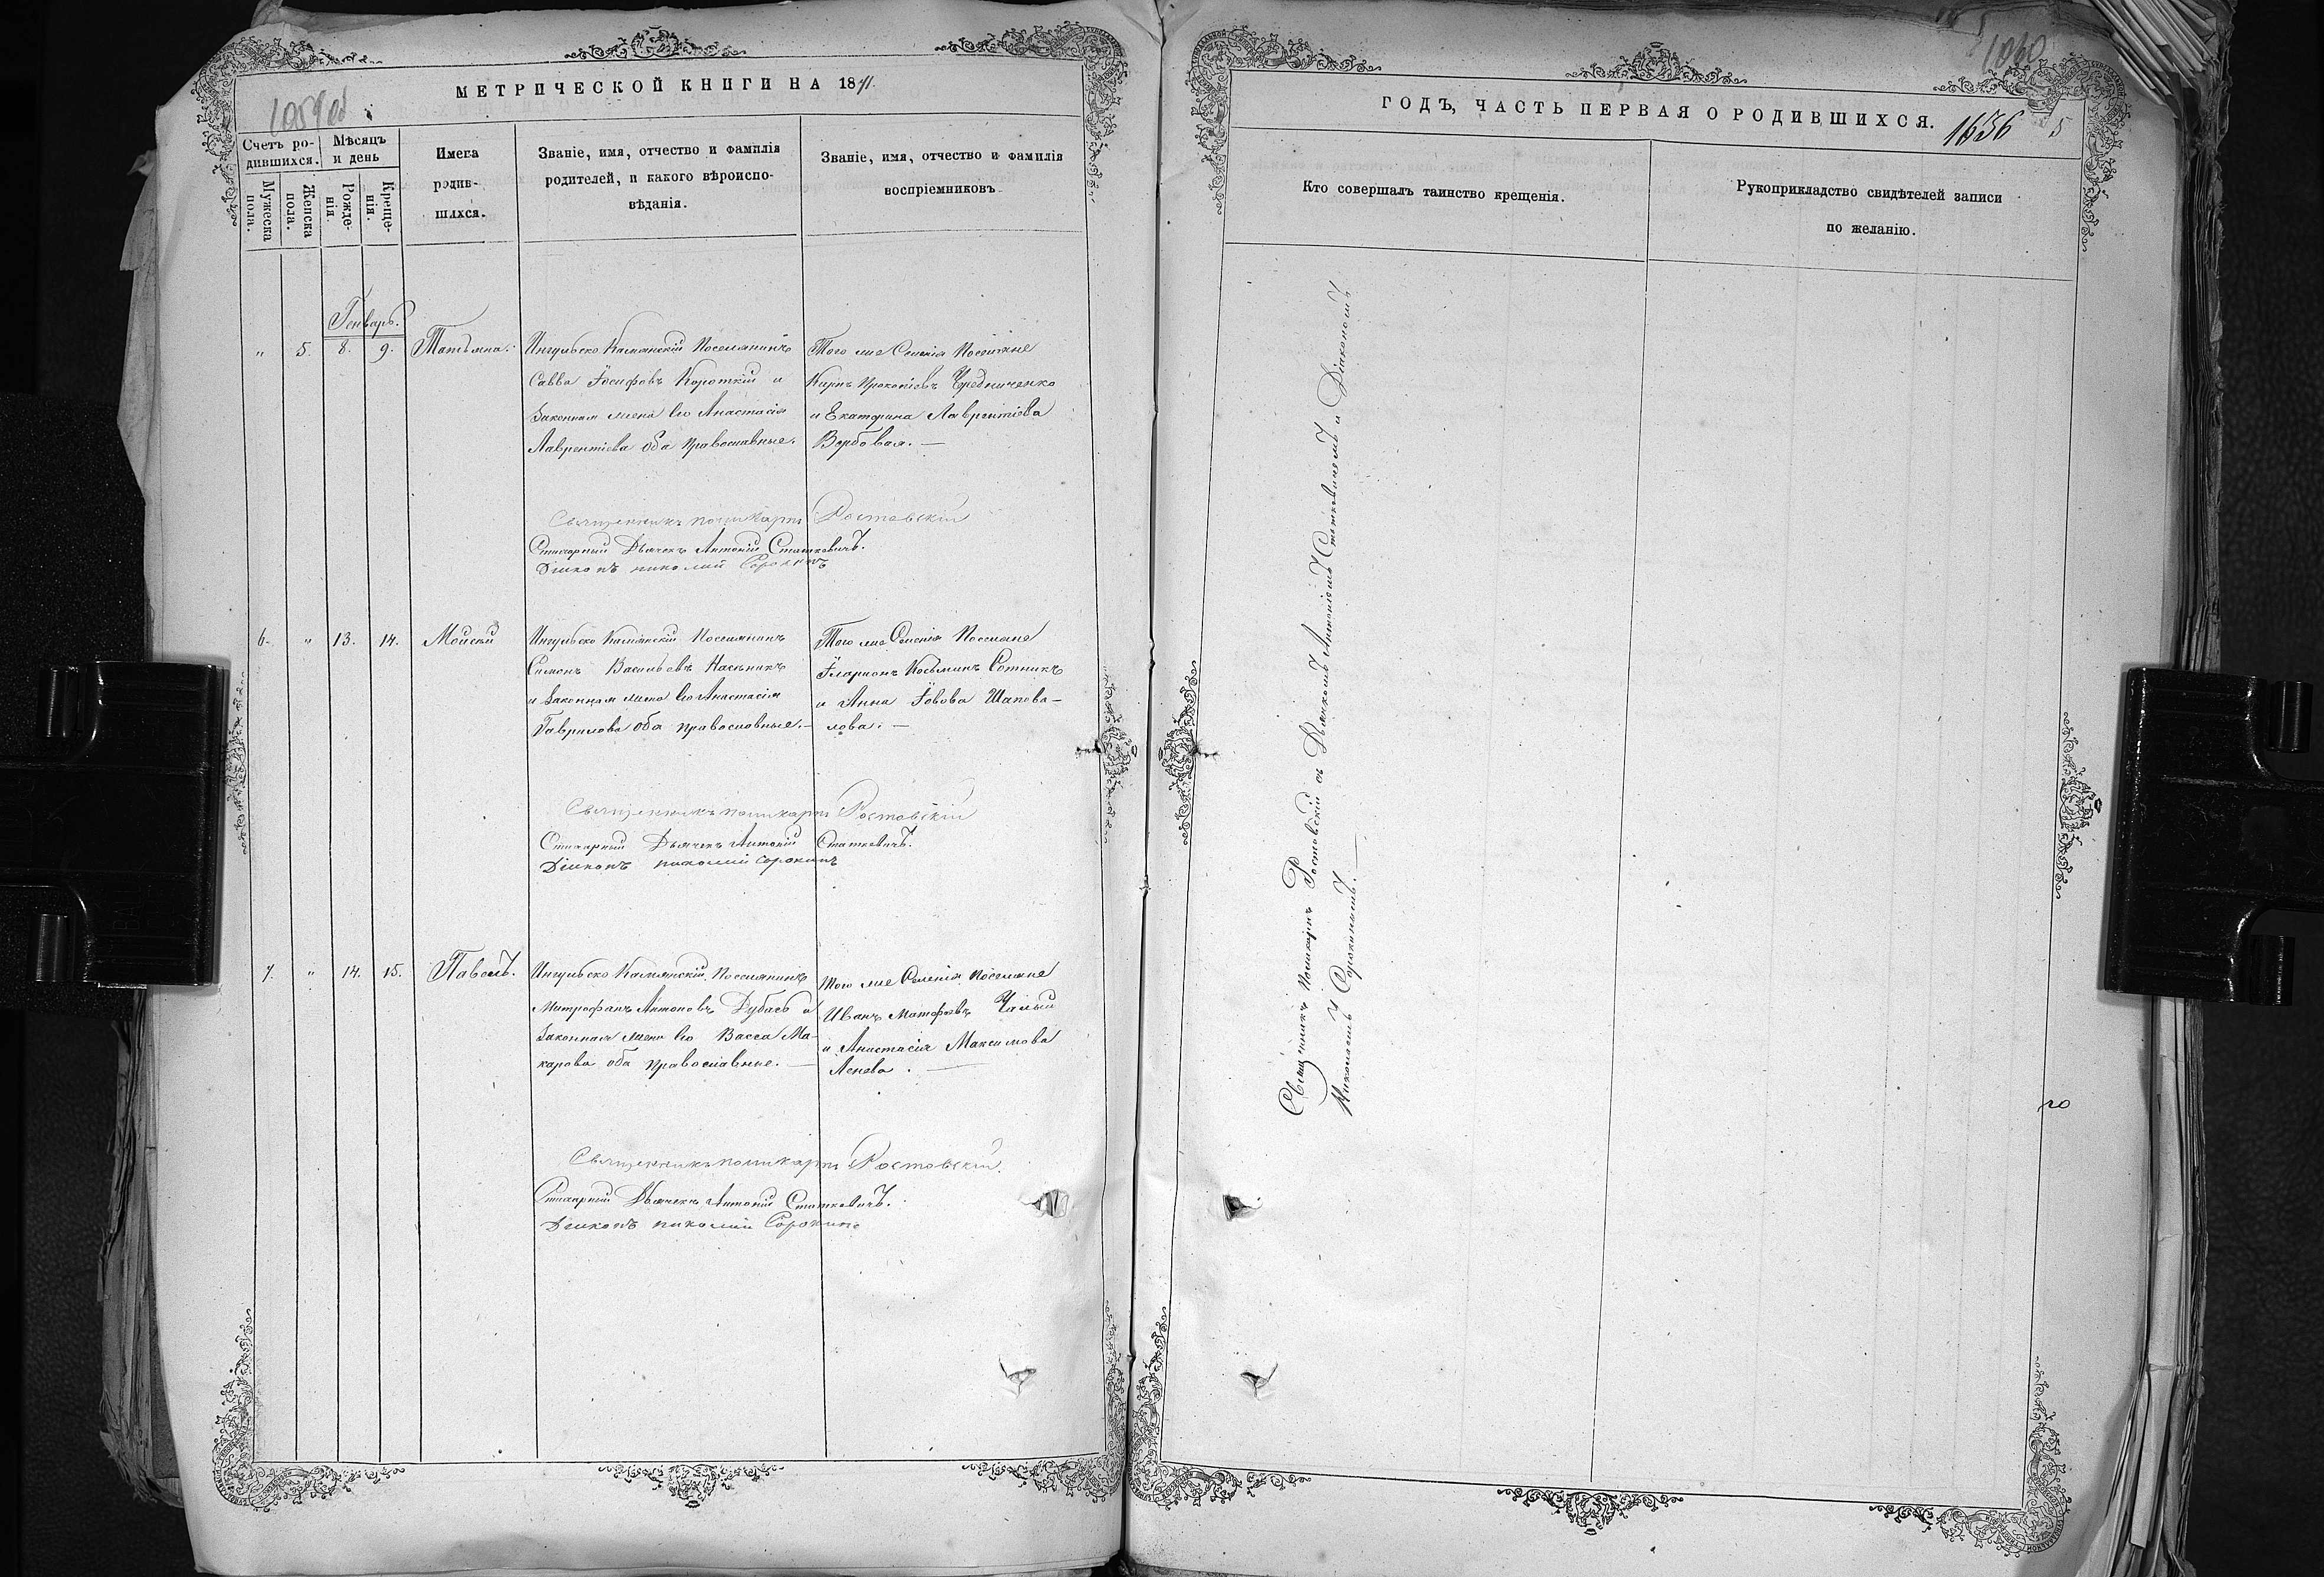 1059 об
МЕТРИЧЕСКОЙ КНИГИ НА 1871.
Счетъ ро-
дившихся.
Мѣсяцъ
и день
Мужеска
пола.
Женска
пола.
Рожде-
нія.
Креще-
нія.
Имена
родив-
шихся.
Званіе, имя, отчество и фамилія
родителей, и какого вѣроиспо-
вѣданія.
Званіе, имя, отчество и фамилія
воспріемниковъ
Генварь.
„ 5. 8. 9. Татьяна.
Ингульско Каменскій Поселянинъ
Савва Іосифовъ Короткій и
Законная жена его Анастасія
Лаврентіева оба православные.
Того же Селенія Поселяне
Кирпъ Прокопіевъ Чередниченко
и Екатерина Лаврентіева
Вербовая. —
Священникъ Поликарпъ Ростовскій
Стихарный Дьячекъ Антоній Статкевичъ.
Діаконъ Николай Сорокинъ
6. „ 13. 14. Моисей
Ингульско Каменскій Поселянинъ
Симонъ Васильевъ
и Законная жена его Анастасія
Гаврилова оба православные. —
Того же Селенія Поселяне
Іларіонъ Косьминъ Сотникъ
и Анна Іовова Шапова-
лова. —
Священникъ Поликарпъ Ростовскій
Стихарный Дьячекъ Антоній Статкевичъ.
Діаконъ Николай Сорокинъ
7. „ 14. 15. Павелъ.
Ингульско Каменскій Поселянинъ
Митрофанъ Антоновъ Дубасъ и
Законная жена его Васса Ма-
карова оба православные. —
Того же Селенія Поселяне
Иванъ Матфѣевъ Чалый
и Анастасія Максимова
Священникъ Поликарпъ Ростовскій.
Стихарный Дьячекъ Антоній Статкевичъ.
Діаконъ Николай Сорокинъ
1060
ГОДЪ, ЧАСТЬ ПЕРВАЯ О РОДИВШИХСЯ.
1636 5
Кто совершалъ таинство крещенія.
Рукоприкладство свидѣтелей записи
по желанію.
Священникъ Поликарпъ Ростовскій съ Дьячкомъ Антоніемъ Статкевичемъ и Діакономъ
Николаемъ Сорокинымъ. —
го